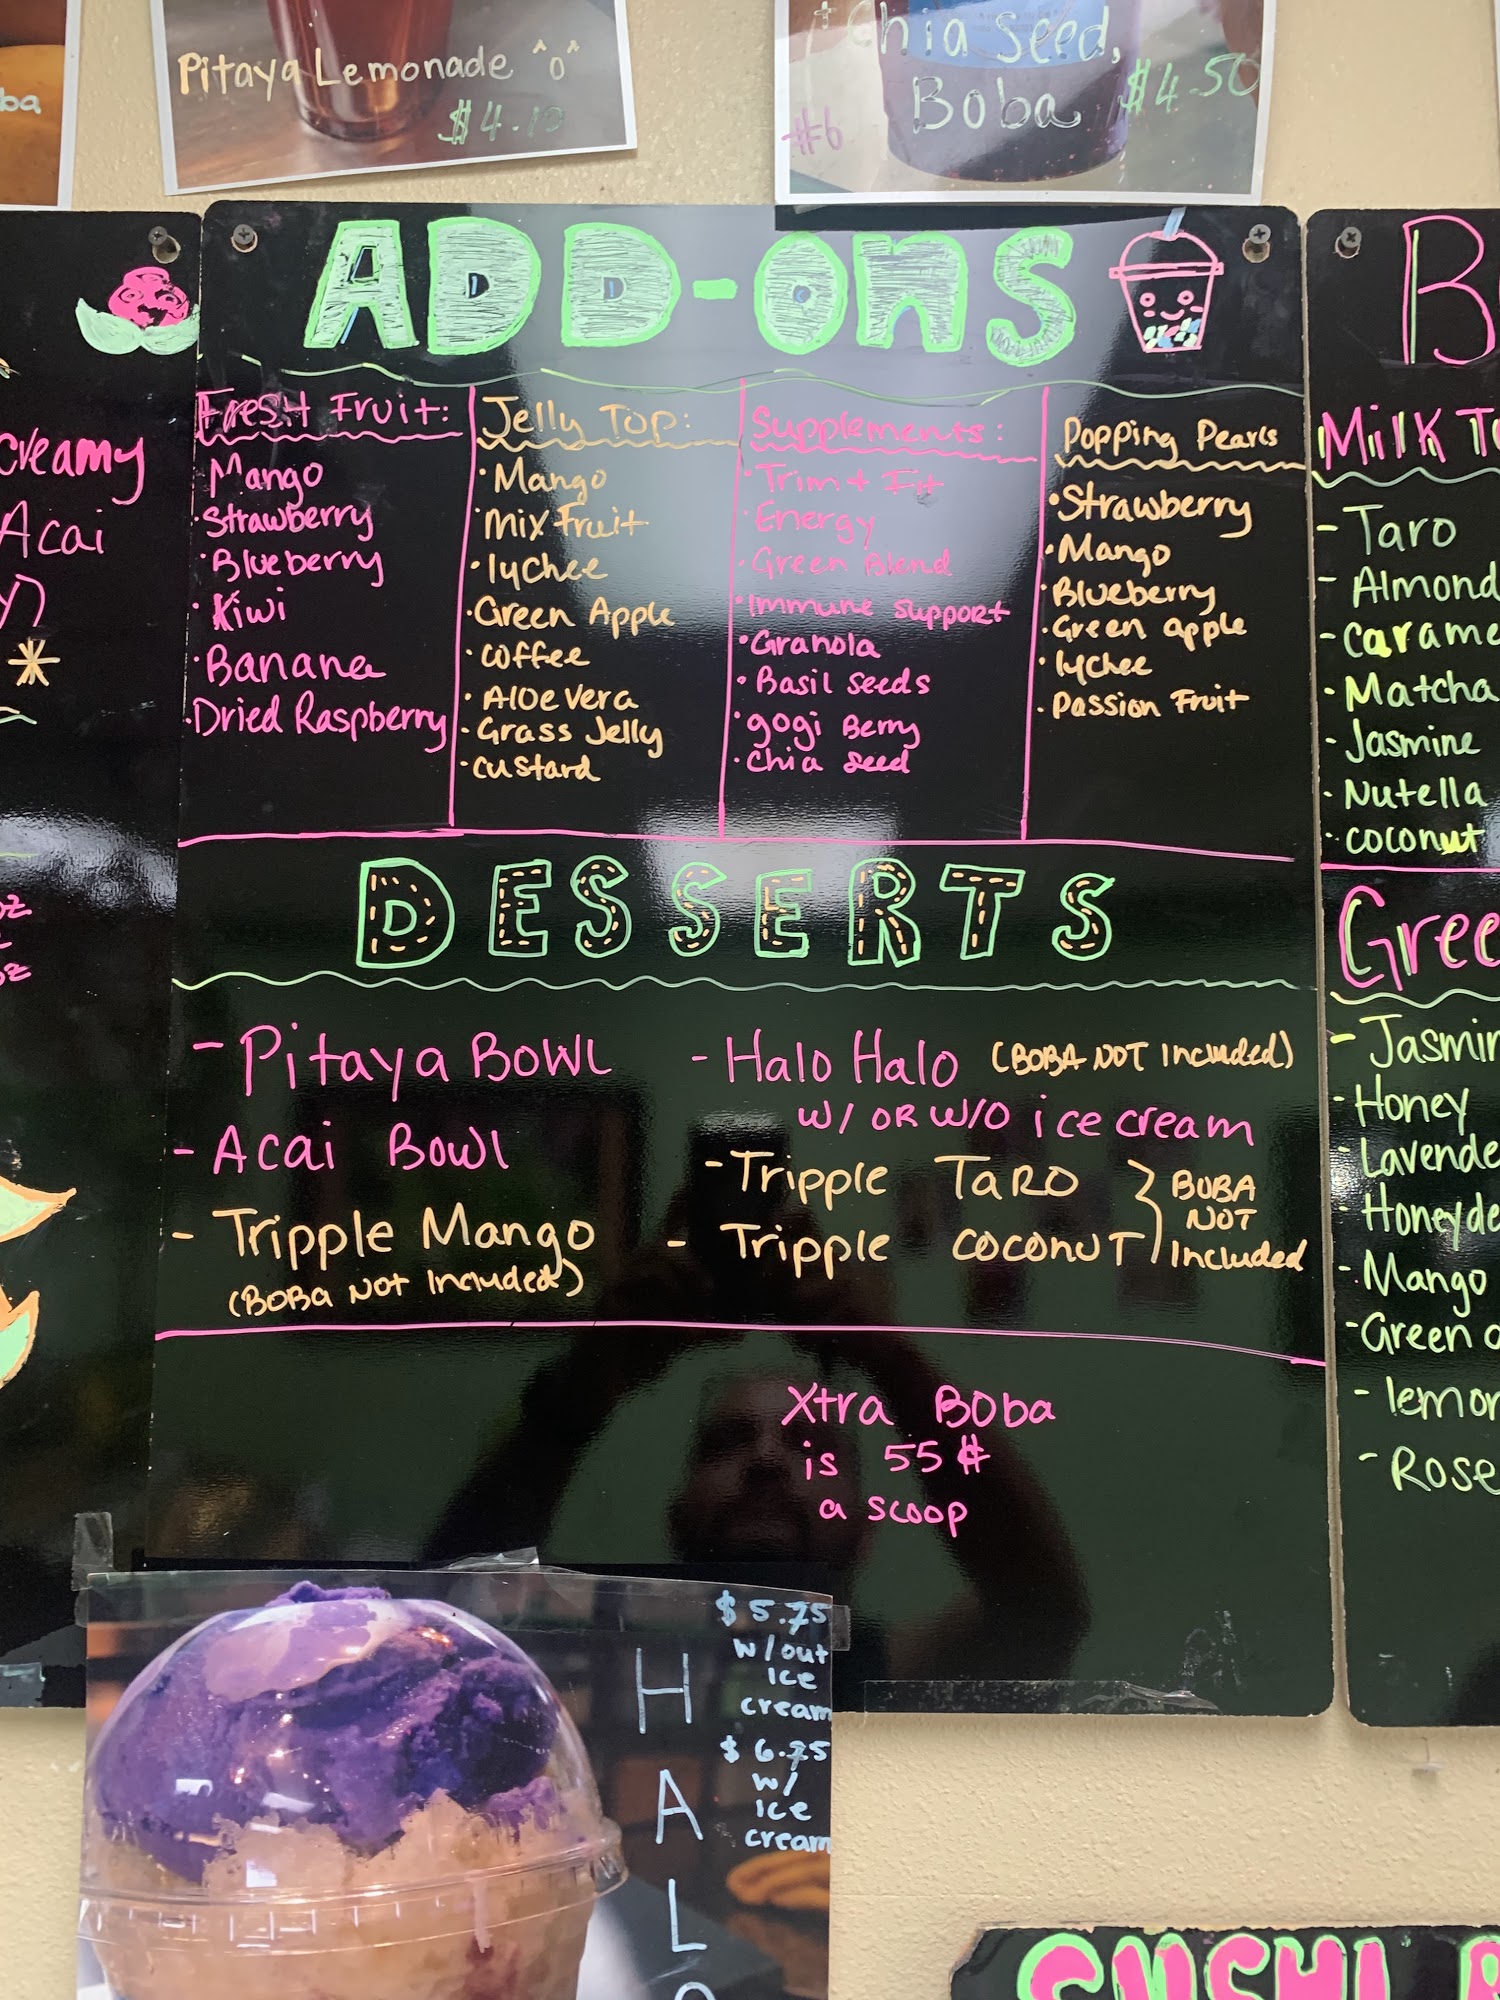 ba
Pitaya Lemonade ^o^
$4.10
+ Chia Seed,
Boba
$4.50
#6
creamy
Acai
*
oz
oz
ADD-ONS
Fresh Fruit:
Mango
·Strawberry
·Blueberry
·Kiwi
·Banana
·Dried Raspberry
Jelly Top:
·Mango
·Mix Fruit
·lychee
·Green Apple
·coffee
·Aloe Vera
·Grass Jelly
·custard
Supplements:
·Trim + Fit
·Energy
·Green Blend
·Immune support
·Granola
·Basil seeds
·gogi Berry
·chia seed
Popping Pearls
·Strawberry
·Mango
·Blueberry
·Green apple
·lychee
·Passion Fruit
DESSERTS
- Pitaya Bowl
- Acai Bowl
- Tripple Mango
(BOBA NOT Included)
- Halo Halo (BOBA NOT Included)
W/ OR W/O ice cream
- Tripple TARO
- Tripple COCONUT
BOBA
NOT
Included
Xtra BOba
is 55¢
a scoop
B
Milk T
- Taro
- Almond
- carame
- Matcha
- Jasmine
- Nutella
- coconut
Gree
- Jasmin
- Honey
- Lavende
- Honeyde
- Mango
- Green a
- lemon
- Rose
$5.75
w/out
ice
cream
$6.75
w/
ice
cream
HALO
SUSHI